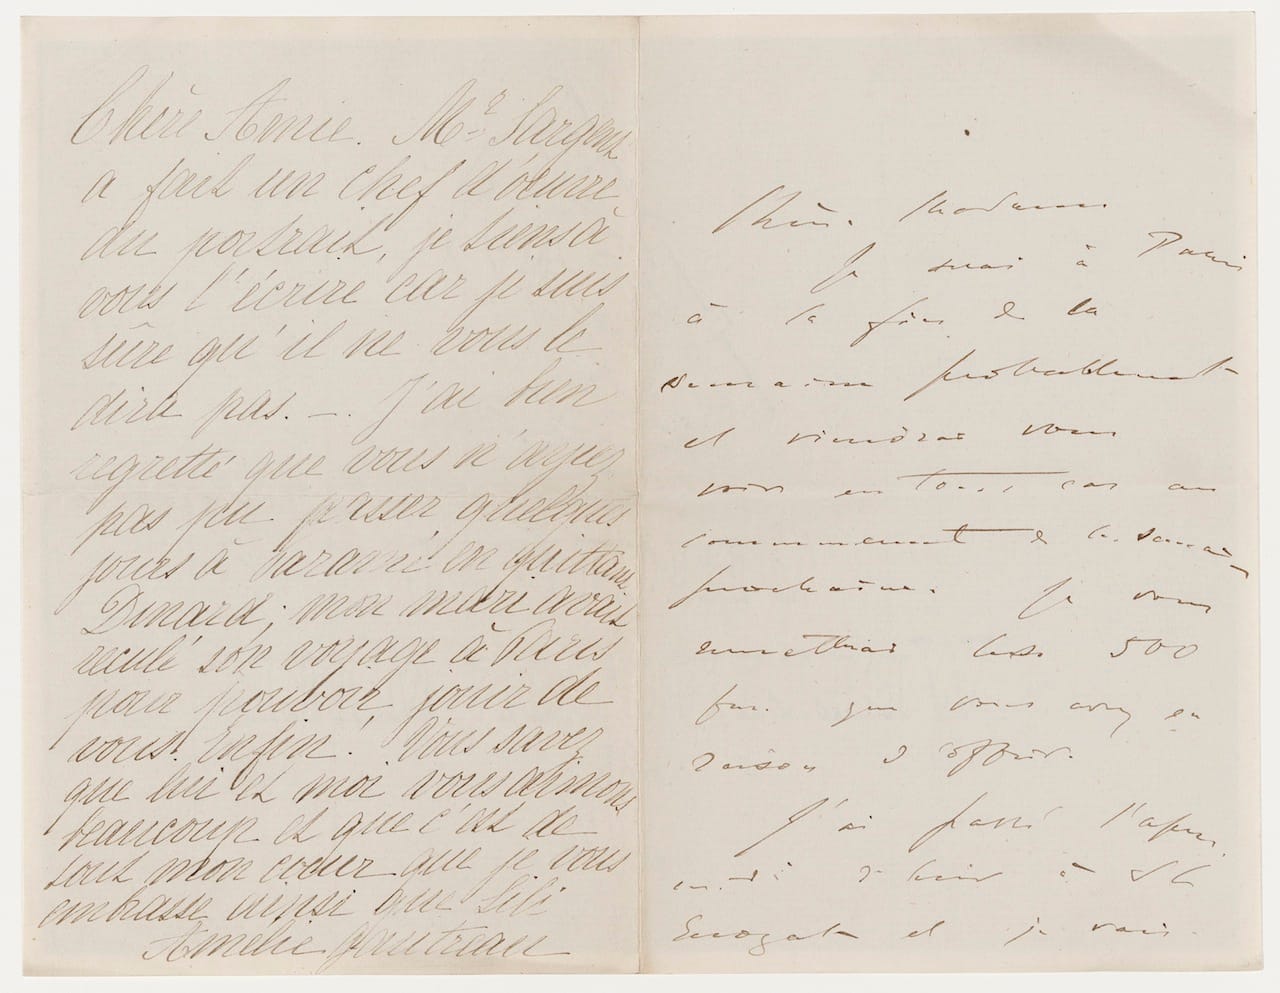 Chère Amie. Mr Sargent
a fait un chef d'oeuvre
du portrait, je tiens à
vous l'écrire car je suis
sûre qu'il ne vous le
dira pas. — . J'ai bien
regretté que vous n'ayez
pas pu passer quelques
jours à Paramé en quittant
Dinard, mon mari avait
reculé son voyage à Paris
pour pouvoir jouir de
vous. Enfin! Vous savez
que lui et moi vous aimons
beaucoup et que c'est de
tout mon coeur que je vous
embrasse ainsi que
Amélie Gautreau
Chère Madame
Je serai à Paris
à la fin de la
semaine probablement
et viendrai vous
voir en tous cas au
commencement de la semaine
prochaine. Je vous
remettrai les 500
frs. que vous avez eu
raison d'offrir.
J'ai passé l'après
midi d'hier à St
Enogat et je vais